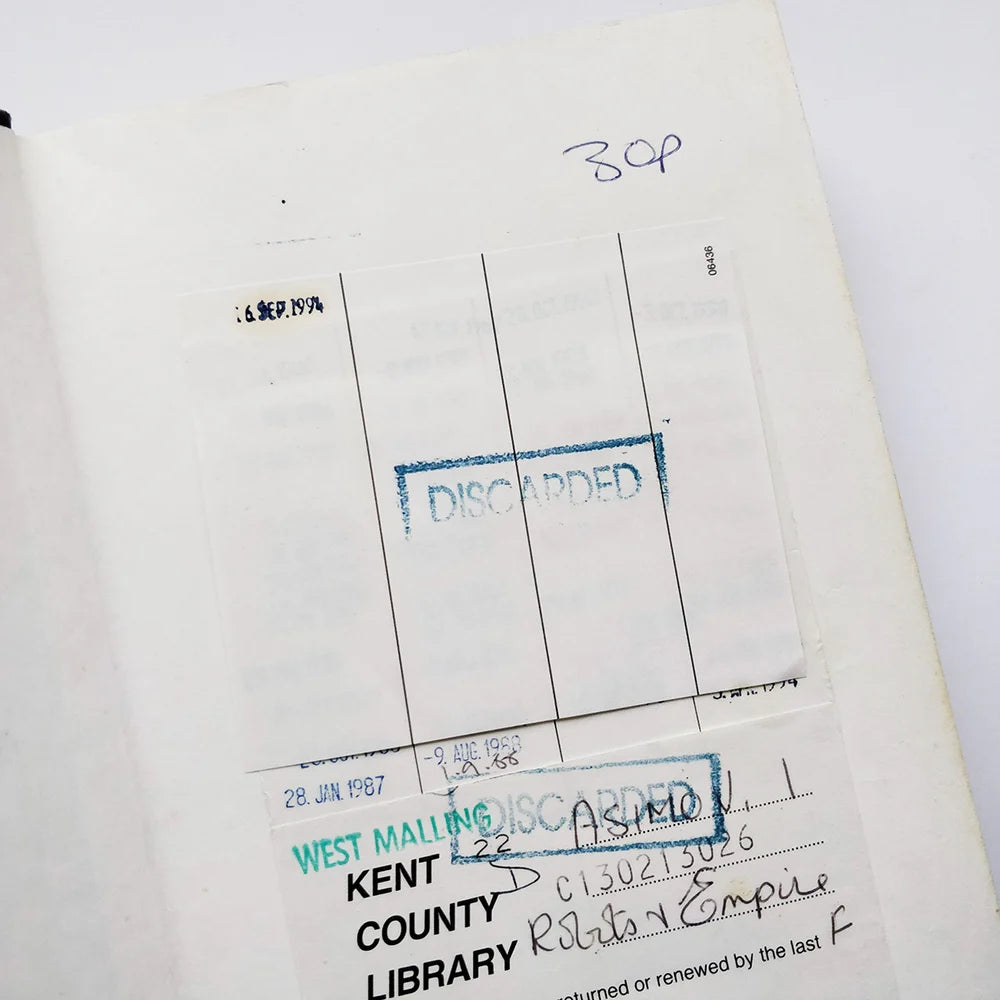 30p
06436
6 SEP. 1994
DISCARDED
-9. AUG. 1988
28. JAN. 1987
1.9.88
DISCARDED
WEST MALLING
22
ASIMOV, I
KENT
C130213026
COUNTY
Robots & Empire
LIBRARY
returned or renewed by the last
F